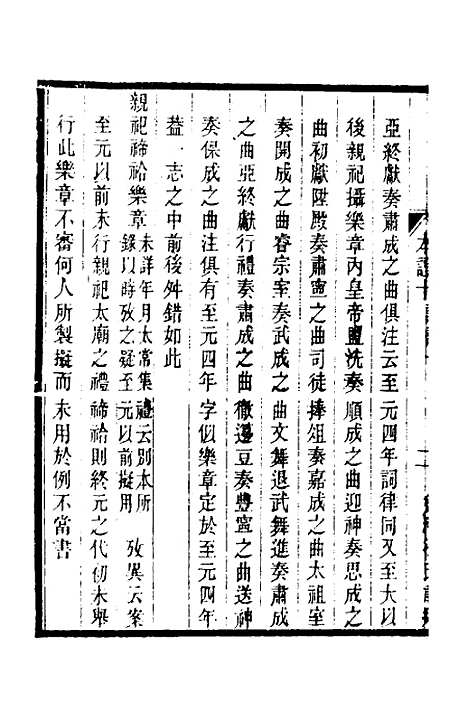 亞終獻奏肅成之曲俱注云至元四年詞律同又至大以
後親祀攝樂章內皇帝盥洗奏順成之曲迎神奏思成之
曲初獻陞殿奏肅寧之曲司徒捧俎奏嘉成之曲太祖室
奏開成之曲睿宗室奏武成之曲文舞退武舞進奏肅成
之曲亞終獻行禮奏肅成之曲徹籩豆奏豐寧之曲送神
奏保成之曲注俱有至元四年字似樂章定於至元四年
葢一志之中前後舛錯如此
親祀禘祫樂章未詳年月太常集禮云別本所
錄以時攷之疑至元以前擬用攷異云案
至元以前未行親祀太廟之禮禘祫則終元之代仞未舉
行此樂章不審何人所製擬而未用於例不當書